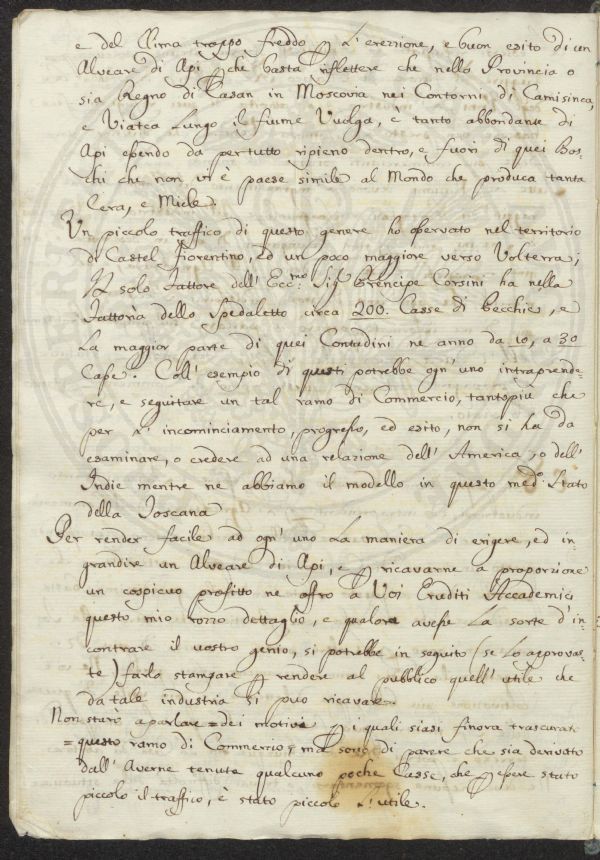 e del Clima troppo freddo p l'erezione, e buon esito di un
Alveare di Api, p che basta riflettere che nello Provincia o
sia Regno di Casan in Moscovia nei Contorni di Camisinca,
e Viatca Lungo il fiume Vuolga, è tanto abbondante di
Api essendo da per tutto ripieno dentro, e fuori di quei Bos-
chi che non vi è paese simile al Mondo che produca tanta
Cera, e Miele.
Un piccolo traffico di questo genere ho osservato nel territorio
di Castel fiorentino, ed un poco maggiore verso Volterra;
Il solo fattore dell' Ecc.mo Sig.r Prencipe Corsini ha nella
fattoria dello Spedaletto circa 200. Casse di Pecchie, e
la maggior parte di quei Contadini ne anno da 10, a 30
Casse. Coll' esempio di questi potrebbe ogn' uno intraprende-
re, e seguitare un tal ramo di Commercio, tantopiù che
per l' incominciamento, progresso, ed esito, non si ha da
esaminare, o credere ad una relazione dell' America, o dell'
Indie mentre ne abbiamo il modello in questo med.o Stato
della Toscana
Per render facile ad ogn' uno la maniera di erigere, ed in-
grandire un Alveare di Api, e p ricavarne a proporzione
un cospicuo profitto ne offro a Voi Eruditi Accademici
questo mio rozzo dettaglio, e qualora avesse la sorte d'in-
contrare il vostro genio, si potrebbe in seguito (se lo approvas-
te) farlo stampare p rendere al pubblico quell' utile che
da tale industria si può ricavare.
Non starò a parlare = dei motivi p i quali siasi finora trascurato
= questo ramo di Commercio, ma sono di parere che sia derivato
dall' Averne tenute qualcuno poche Casse, che p essere stato
piccolo il traffico, è stato piccolo l'utile.